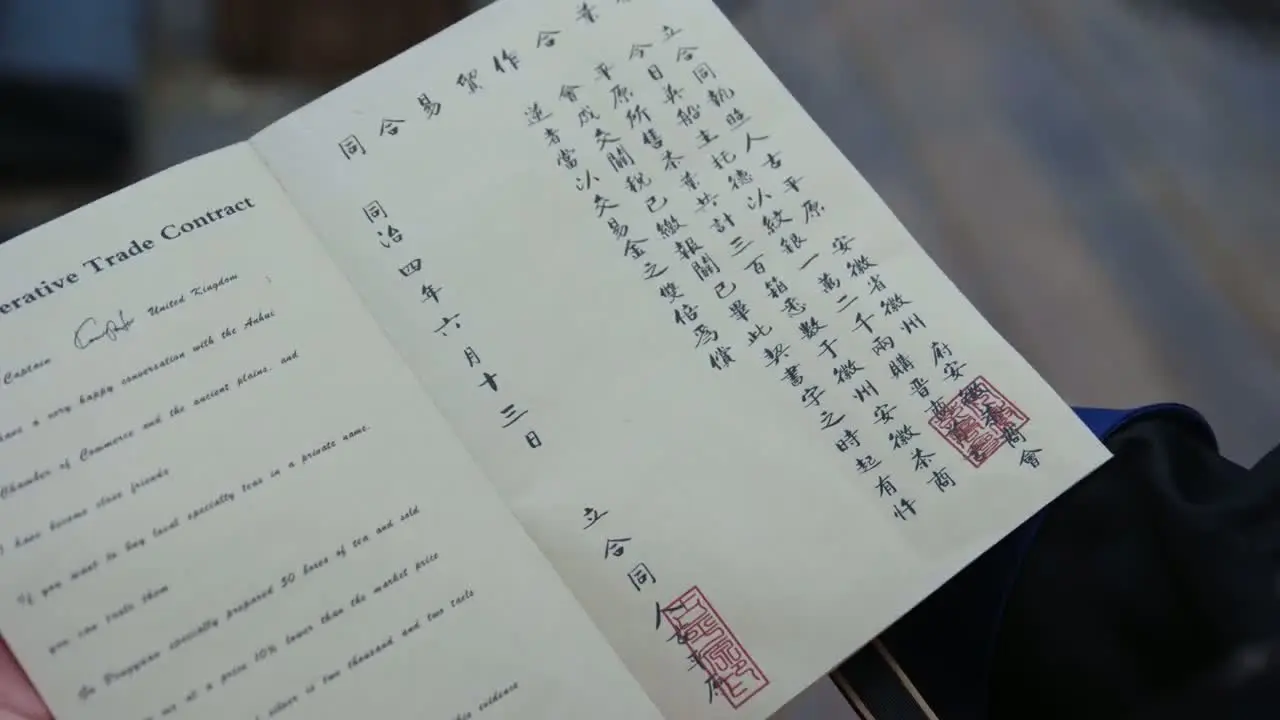 erative Trade Contract
Captain United Kingdom
have a very happy conversation with the Anhui
Chamber of Commerce and the ancient plains, and
I have become close friends
If you want to buy local specialty teas in a private name,
you can taste them
specially prepared 50 boxes of tea and sold
me at a price 10% lower than the market price
silver is two thousand and two taels
this evidence
合作貿易合同
立合同執照人古平原 安徽省徽州府安徽茶商會
今日英船主托德以紋銀一萬二千兩購晉商古
平原所售茶葉共計三百箱悉數于徽州安徽茶商
會成交關稅已繳報關已畢此契書字之時起有忤
逆者當以交易金之雙倍為償
同治四年六月十三日
立合同人古平原